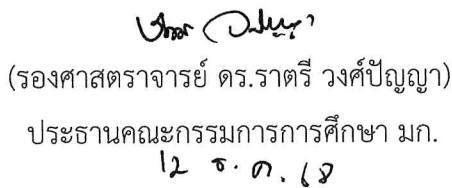 (รองศาสตราจารย์ ดร.ราตรี วงศ์ปัญญา)
ประธานคณะกรรมการการศึกษา มก.
12 ธ.ค. 68